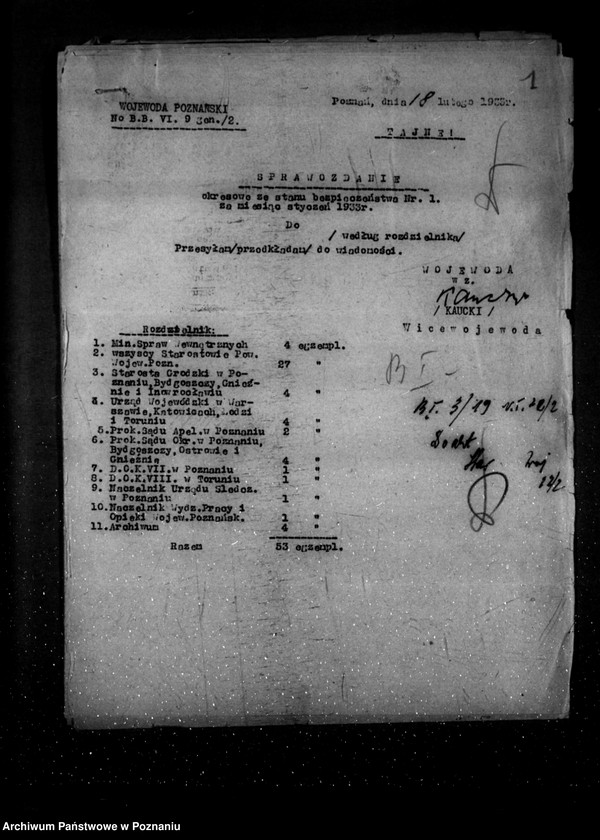 1
WOJEWODA POZNAŃSKI
No B.B. VI. 9 gen./2.
Poznań, dnia 18 lutego 1933r.
TAJNE!
SPRAWOZDANIE
okresowe ze stanu bezpieczeństwa Nr. 1.
za miesiąc styczeń 1933r.
Do
/według rozdzielnika/
Przesyłam/przedkładam/ do wiadomości.
WOJEWODA
w z.
/KAUCKI/
Vicewojewoda
Rozdzielnik:
1. Min.Spraw Wewnętrznych 4 egzempl.
2. wszyscy Starostowie Pow.
Wojew.Pozn. 27 "
3. Starosta Grodzki w Po-
znaniu,Bydgoszczy,Gnieź-
nie i Inowrocławiu 4 "
4. Urząd Wojewódzki w War-
szawie,Katowicach,Łodzi
i Toruniu 4 "
5.Prok.Sądu Apel.w Poznaniu 2 "
6. Prok.Sądu Okr.w Poznaniu,
Bydgoszczy,Ostrowie i
Gnieźnie 4 "
7. D.O.K.VII.w Poznaniu 1 "
8. D.O.K.VIII. w Toruniu 1 "
9. Naczelnik Urzędu Śledcz.
w Poznaniu 1 "
10.Naczelnik Wydz.Pracy i
Opieki Wojew.Poznańsk. 1 "
11.Archiwum 4 "
Razem 53 egzempl.
B I -
3/19
12/2
Archiwum Państwowe w Poznaniu